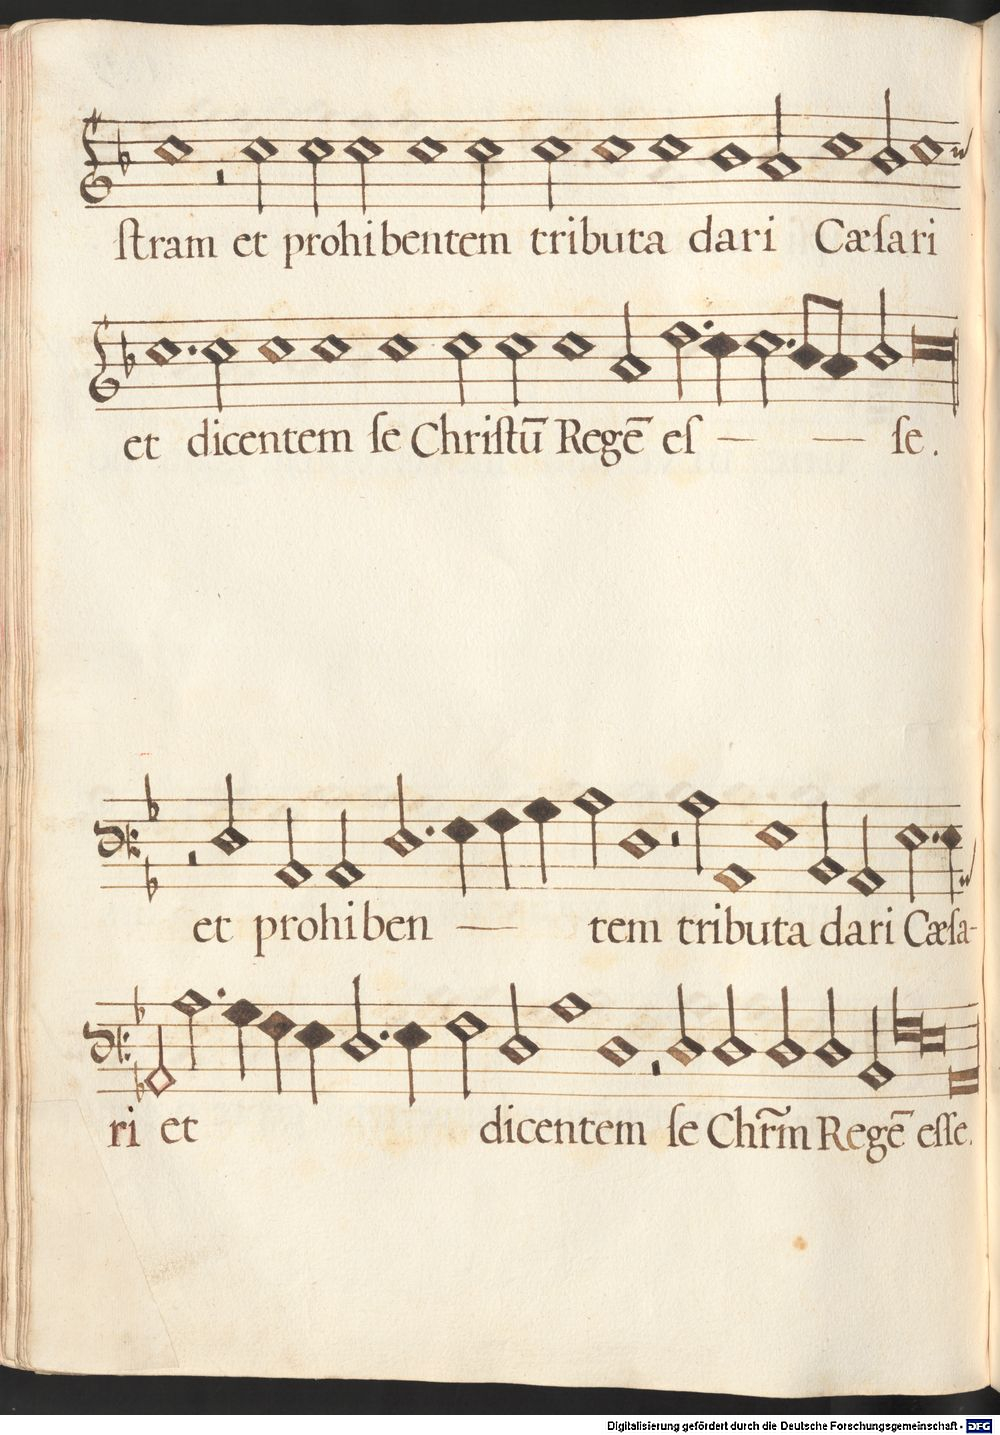 ſtram et prohibentem tributa dari Cæſari
et dicentem ſe Chriſtū Regē eſ — — ſe.
et prohiben — tem tributa dari Cæſa-
ri et dicentem ſe Chr̃m Regē eſſe.
Digitalisierung gefördert durch die Deutsche Forschungsgemeinschaft - DFG